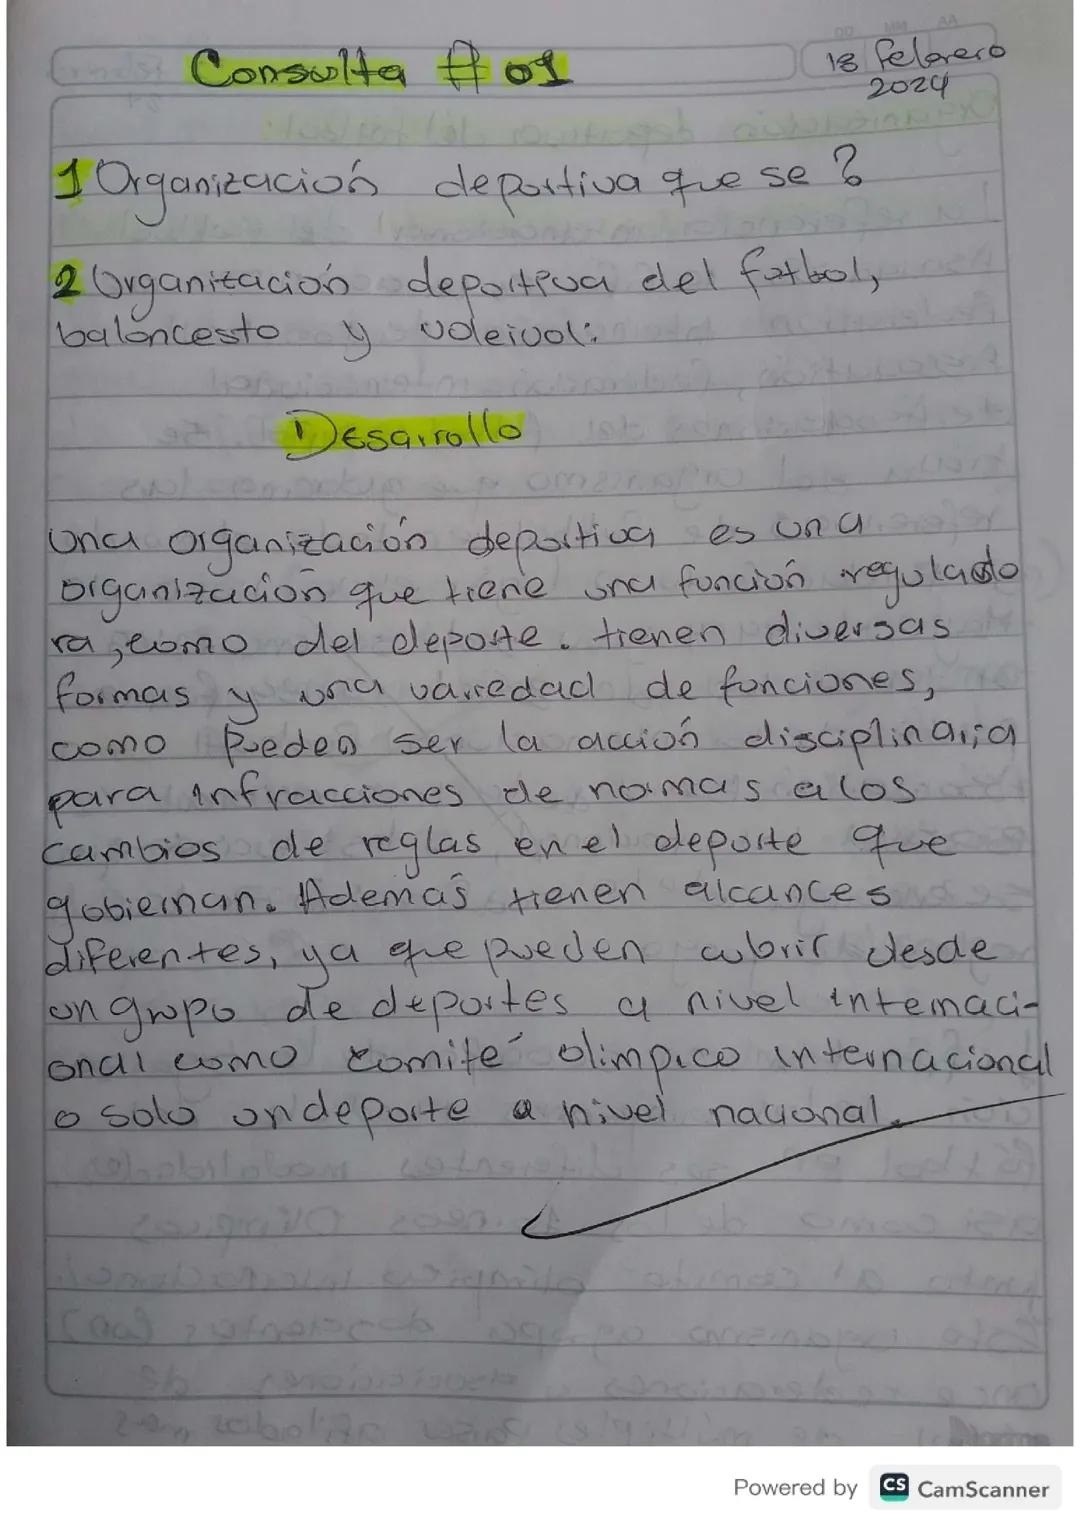 Consulta # 01
18 febrero
2024
1 Organización deportiva que se ?
2 Organización deportiva del futbol,
baloncesto y voleivol:
Desarrollo
Una organización deportiva es una
organización que tiene una función regulado
ra, como del deporte. tienen diversas
formas y una variedad de funciones,
como pueden ser la acción disciplinaria
para infracciones de normas a los
cambios de reglas en el deporte que
gobiernan. Además tienen alcances
diferentes, ya que pueden cubrir desde
un grupo de deportes a nivel internaci-
onal como comité olimpico internacional
o solo un deporte a nivel nacional.
Powered by CS CamScanner